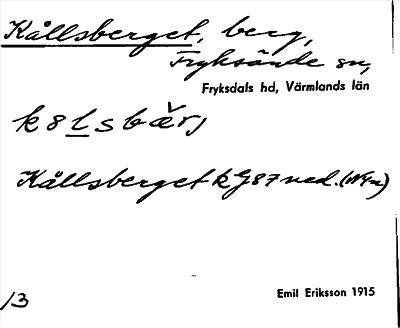 Kållsberget, berg,
Fryksände sn,
Fryksdals hd, Värmlands län
k 8 l s b æ̌ r j
Kållsberget k G87 ned.
13
Emil Eriksson 1915